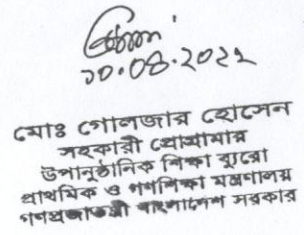 ১০.০৪.২০২২
মোঃ গোলজার হোসেন
সহকারী প্রোগ্রামার
উপানুষ্ঠানিক শিক্ষা ব্যুরো
প্রাথমিক ও গণশিক্ষা মন্ত্রণালয়
গণপ্রজাতন্ত্রী বাংলাদেশ সরকার